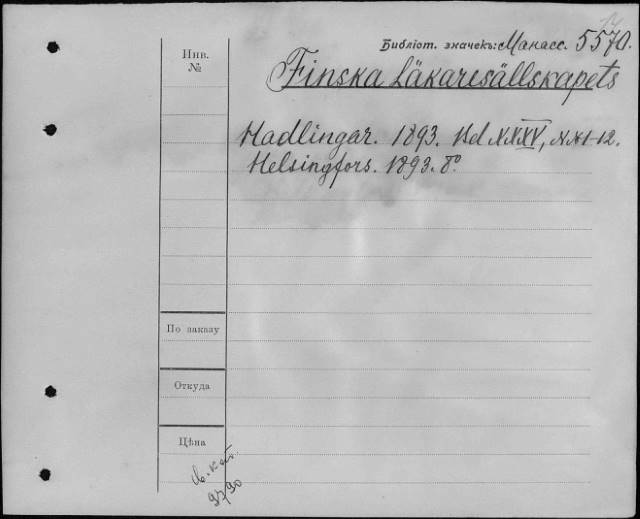 Библіот. значекъ: Манасс. 5570.
Инв. №
Finska Läkaresällskapets
Hadlingar. 1893. Bd XXXV, NN 1-12.
Helsingfors. 1893. 8º
По заказу
Откуда
Цѣна